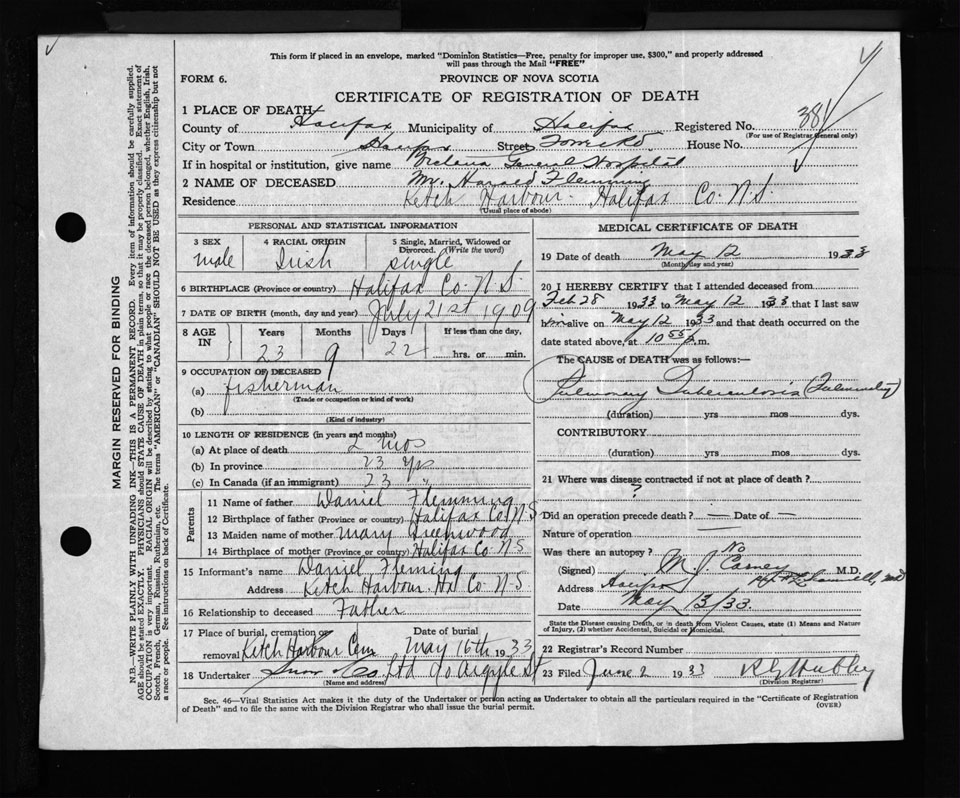 This form if placed in an envelope, marked "Dominion Statistics—Free, penalty for improper use, $300," and properly addressed
will pass through the Mail "FREE"
FORM 6. PROVINCE OF NOVA SCOTIA
CERTIFICATE OF REGISTRATION OF DEATH
1 PLACE OF DEATH
County of Halifax Municipality of Halifax Registered No. 381
(For use of Registrar General only)
City or Town Halifax Street House No.
If in hospital or institution, give name General Hospital
2 NAME OF DECEASED Mr. Harold Flemming
Residence Ketch Harbour. Halifax Co. N.S.
(Usual place of abode)
PERSONAL AND STATISTICAL INFORMATION
3 SEX 4 RACIAL ORIGIN 5 Single, Married, Widowed or
Divorced. (Write the word)
male Irish single
6 BIRTHPLACE (Province or country) Halifax Co. N.S.
7 DATE OF BIRTH (month, day and year) July 21st 1909
8 AGE IN Years Months Days If less than one day,
23 9 22 hrs. or min.
9 OCCUPATION OF DECEASED
(a) fisherman
(Trade or occupation or kind of work)
(b)
(Kind of industry)
10 LENGTH OF RESIDENCE (in years and months)
(a) At place of death 2 mos
(b) In province 23 yrs
(c) In Canada (if an immigrant) 23 "
Parents
11 Name of father Daniel Flemming
12 Birthplace of father (Province or country) Halifax Co N S
13 Maiden name of mother Mary Greenwood
14 Birthplace of mother (Province or country) Halifax Co N S
15 Informant's name Daniel Fleming
Address Ketch Harbour. Hx Co. N-S.
16 Relationship to deceased Father
17 Place of burial, cremation or Date of burial
removal Ketch Harbour Cem May 16th 1933
18 Undertaker Snow Co. Ltd 90 Argyle St
(Name and address)
MEDICAL CERTIFICATE OF DEATH
19 Date of death May 12 1933
(Month, day and year)
20 I HEREBY CERTIFY that I attended deceased from
Feb 28 1933 to May 12 1933 that I last saw
him alive on May 12 1933 and that death occurred on the
date stated above, at 10 55 m.
The CAUSE OF DEATH was as follows:—
Pulmonary Tuberculosis
(duration) yrs mos dys.
CONTRIBUTORY.
(duration) yrs mos dys.
21 Where was disease contracted if not at place of death ?
?
Did an operation precede death ? — Date of —
Nature of operation
Was there an autopsy ? No
(Signed) M. J. Carney M.D.
Address Halifax
Date May 13/33.
State the Disease causing Death, or in death from Violent Causes, state (1) Means and Nature
of Injury, (2) whether Accidental, Suicidal or Homicidal.
22 Registrar's Record Number
23 Filed June 2 1933
(Division Registrar)
Sec. 46—Vital Statistics Act makes it the duty of the Undertaker or person acting as Undertaker to obtain all the particulars required in the "Certificate of Registration
of Death" and to file the same with the Division Registrar who shall issue the burial permit. (OVER)
MARGIN RESERVED FOR BINDING
N.B.—WRITE PLAINLY WITH UNFADING INK—THIS IS A PERMANENT RECORD. Every item of information should be carefully supplied.
AGE should be stated EXACTLY. PHYSICIANS should STATE CAUSE OF DEATH in plain terms, so that it may be properly classified. Exact statement of
OCCUPATION is very important. RACIAL ORIGIN will be described by stating to what people or race the deceased person belonged, whether English, Irish,
Scotch, French, German, Russian, Ruthenian, etc. The terms "AMERICAN" or "CANADIAN" SHOULD NOT BE USED as they express citizenship but not
a race or people. See instructions on back of Certificate.